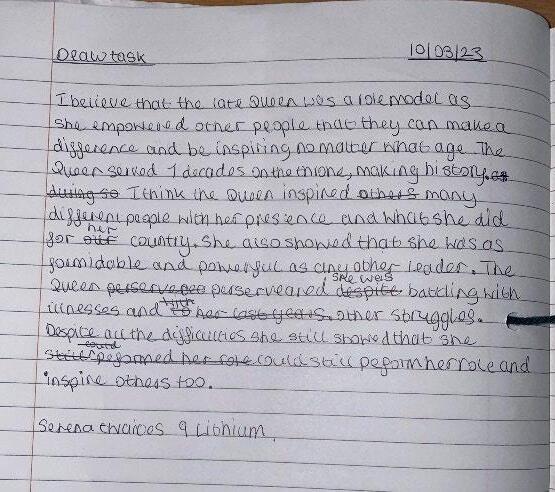 Deaw task 10/03/23
I believe that the late Queen was a role model as
she empowered other people that they can make a
difference and be inspiring no matter what age The
Queen served 7 decades on the throne, making history. as
during so I think the Queen inspired others many
different people with her presence and what she did
her
for our country. She also showed that she was as
formidable and powerful as any other leader. The
she was
Queen perserveree perserveared despite battling with
with
illnesses and to her last years, other struggles.
Despite all the difficulties she still showed that she
could
still peformed her role could still peform her role and
inspire others too.
Serena 9 Lithium